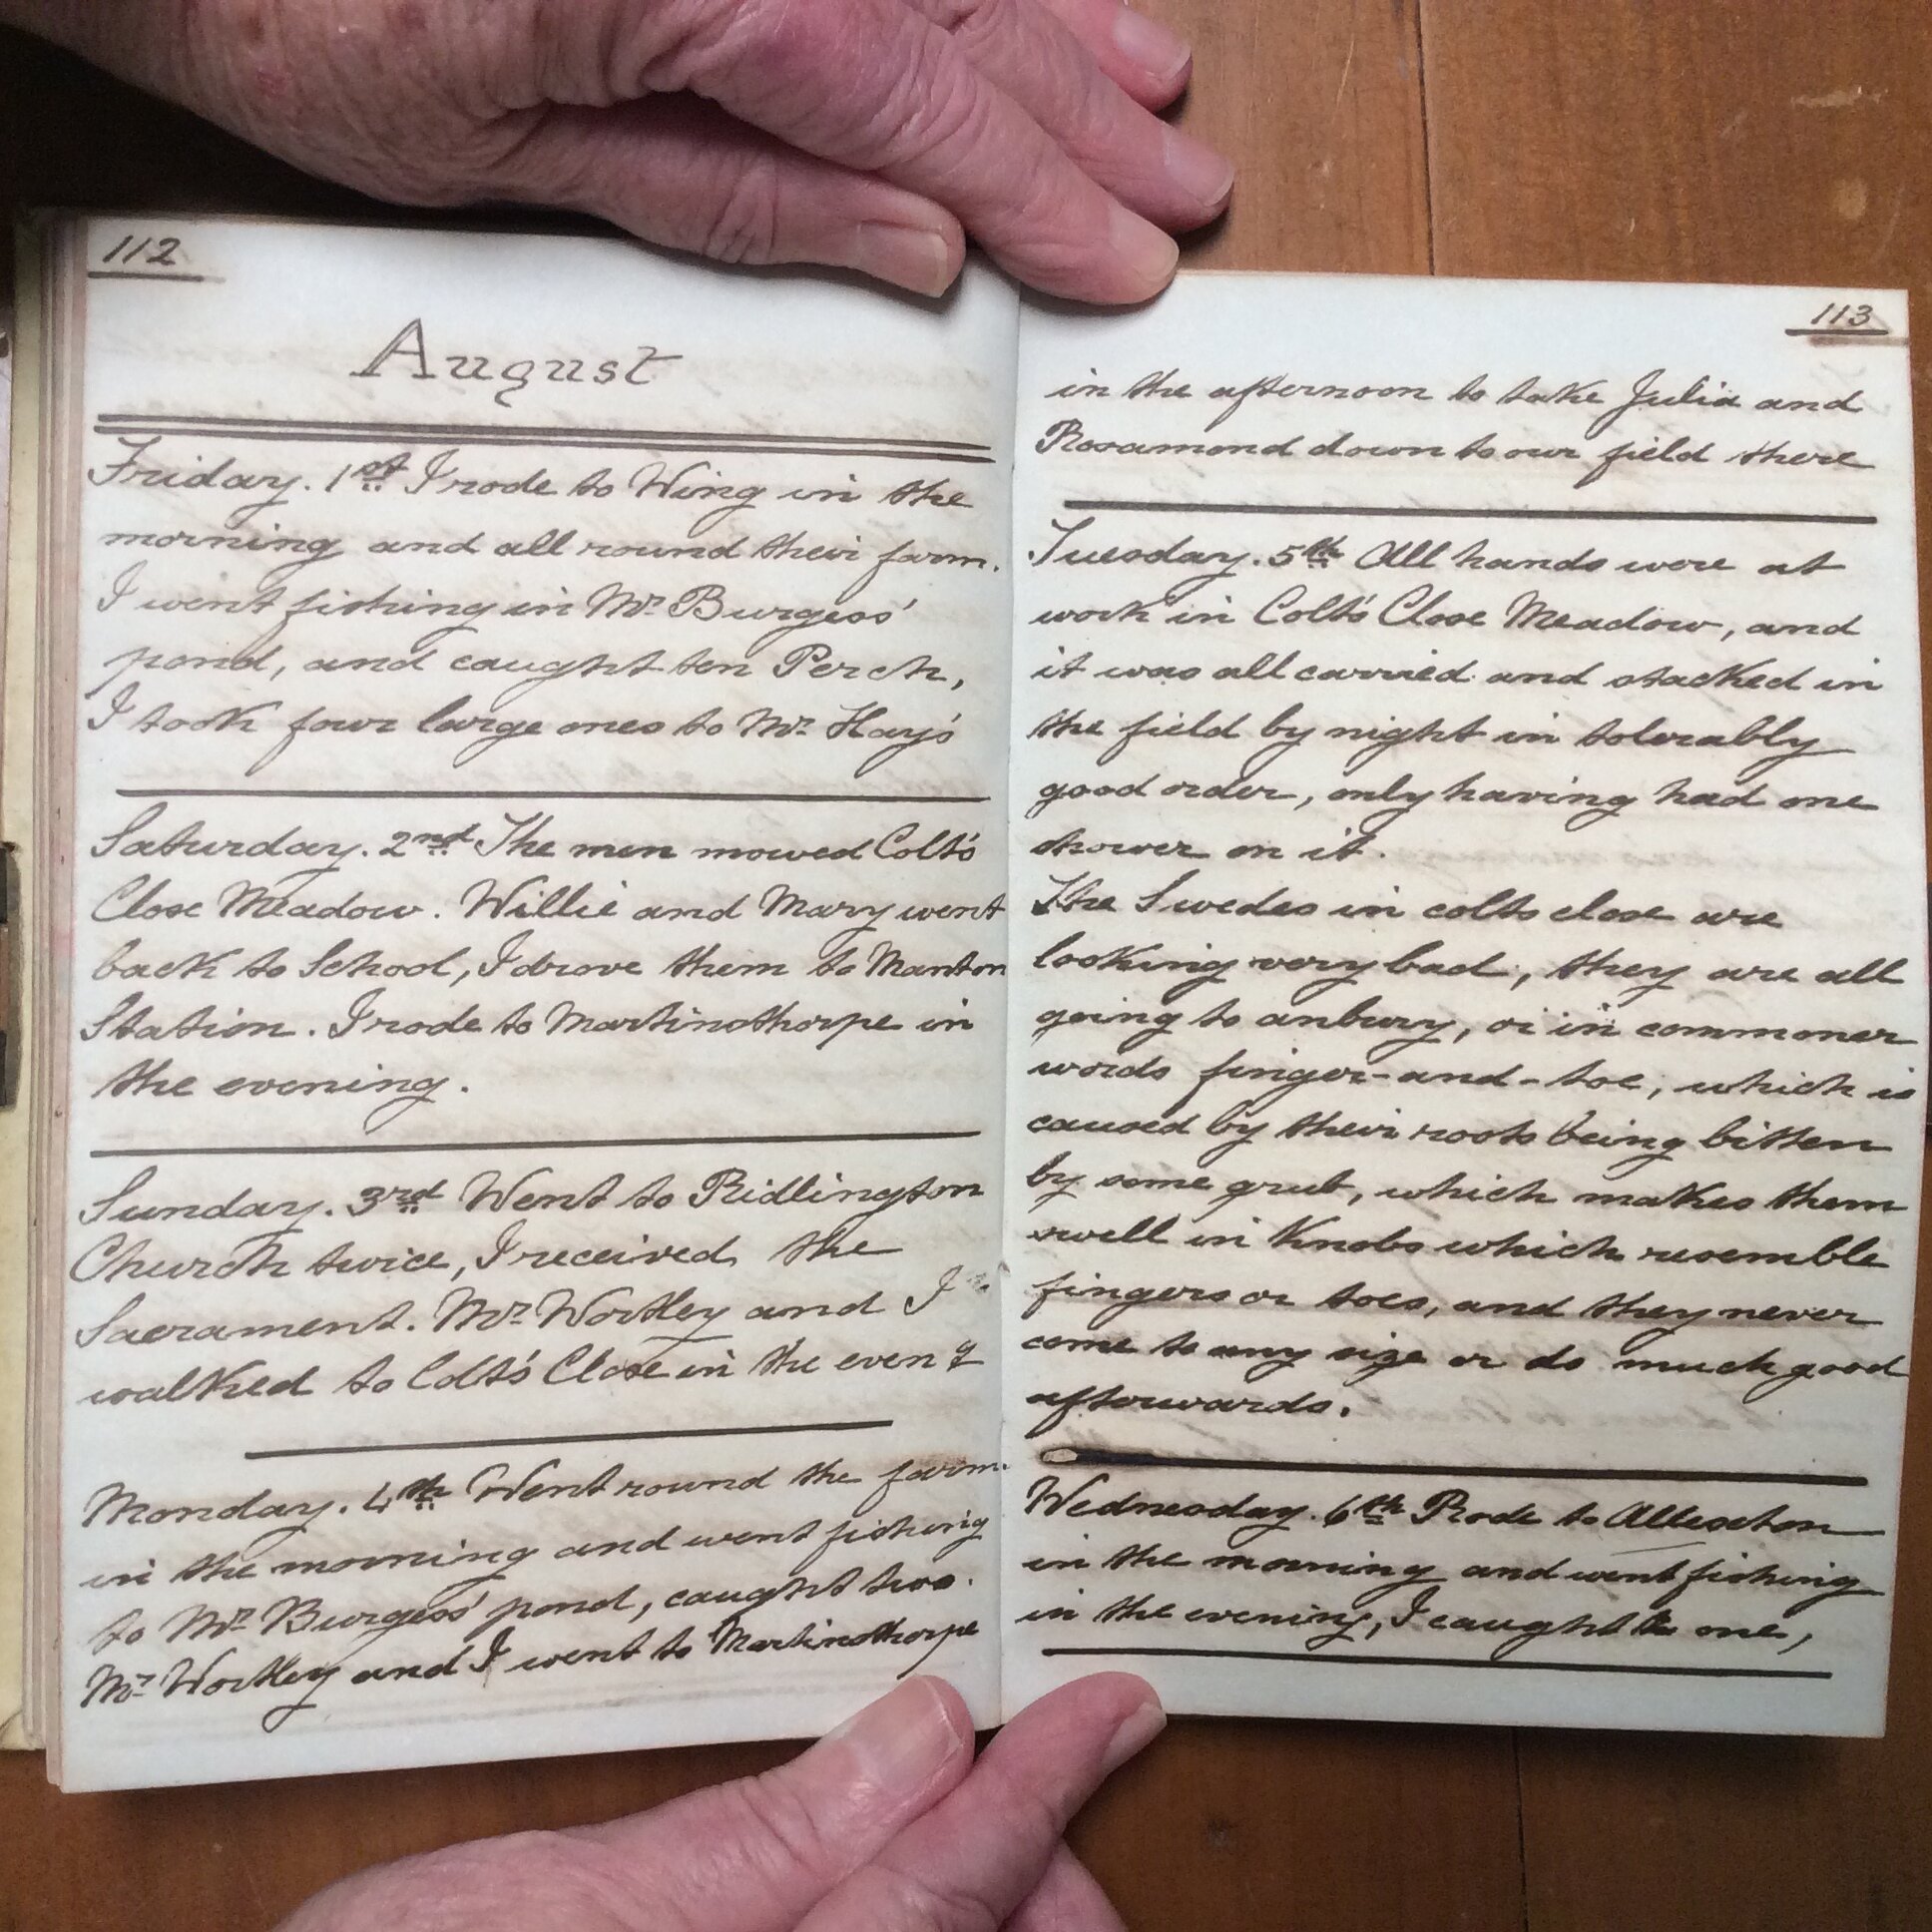 112
August
Friday. 1st I rode to Wing in the
morning and all round their farm.
I went fishing in Mr Burgess'
pond, and caught ten Perch,
I took four large ones to Mr Hay's
Saturday. 2nd The men mowed Colt's
Close Meadow. Willie and Mary went
back to School, I drove them to Manton
Station. I rode to Martinsthorpe in
the evening.
Sunday. 3rd Went to Ridlington
Church twice, I received the
Sacrament. Mr Wortley and I
walked to Colt's Close in the eveng
Monday. 4th Went round the farm.
in the morning and went fishing
to Mr Burgess' pond, caught two.
Mr Wortley and I went to Martinsthorpe
113
in the afternoon to take Julia and
Rosamond down to our field there
Tuesday. 5th All hands were at
work in Colt's Close Meadow, and
it was all carried and stacked in
the field by night in tolerably
good order, only having had one
shower on it.
The Swedes in colts close are
looking very bad, they are all
going to anbury, or in commoner
words finger-and-toe, which is
caused by their roots being bitten
by some grub, which makes them
swell in Knobs which resemble
fingers or toes, and they never
come to any size or do much good
afterwards.
Wednesday. 6th Rode to Allexton
in the morning and went fishing
in the evening, I caught one,